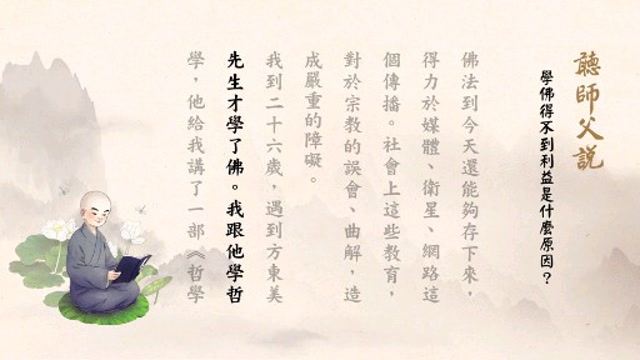 聽師父說
學佛得不到利益是什麼原因？
佛法到今天還能夠存下來，
得力於媒體、衛星、網路這
個傳播。社會上這些教育，
對於宗教的誤會、曲解，造
成嚴重的障礙。
我到二十六歲，遇到方東美
先生才學了佛。我跟他學哲
學，他給我講了一部《哲學